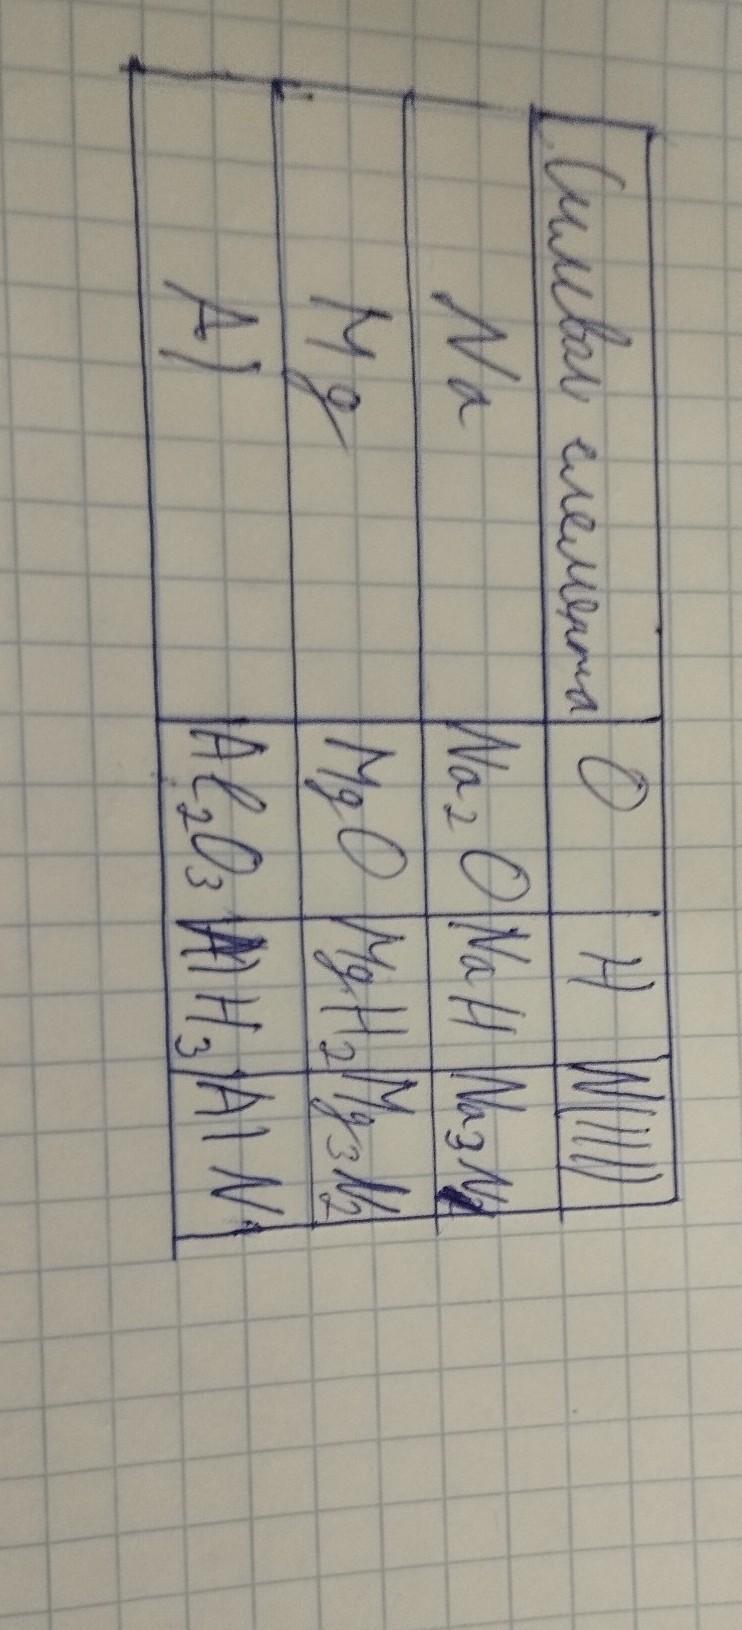 Символ елемента O H N(III)
Na Na₂O NaH Na₃N
Mg MgO MgH₂ Mg₃N₂
Al Al₂O₃ AlH₃ AlN